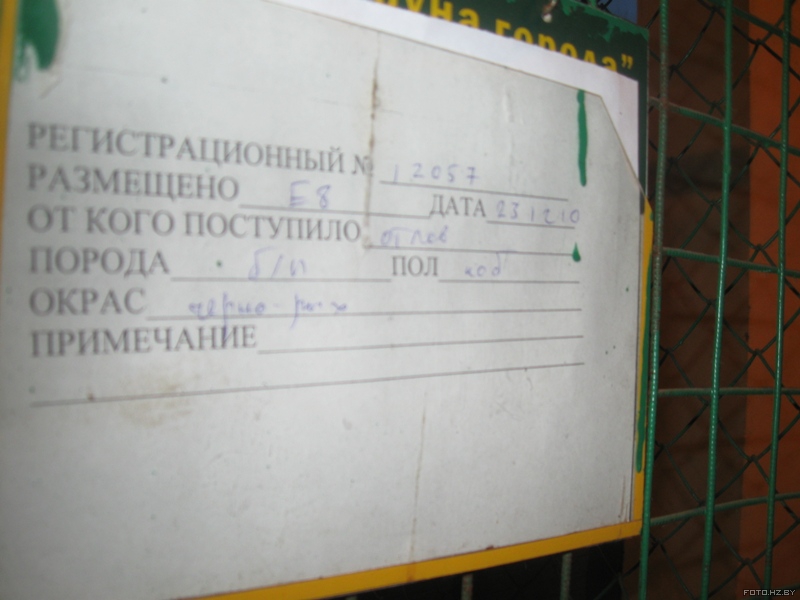 города"
РЕГИСТРАЦИОННЫЙ № 12057
РАЗМЕЩЕНО Е8 ДАТА 23 12 10
ОТ КОГО ПОСТУПИЛО отлов
ПОРОДА б/п ПОЛ коб
ОКРАС черно-рыж
ПРИМЕЧАНИЕ
FOTO.HZ.BY